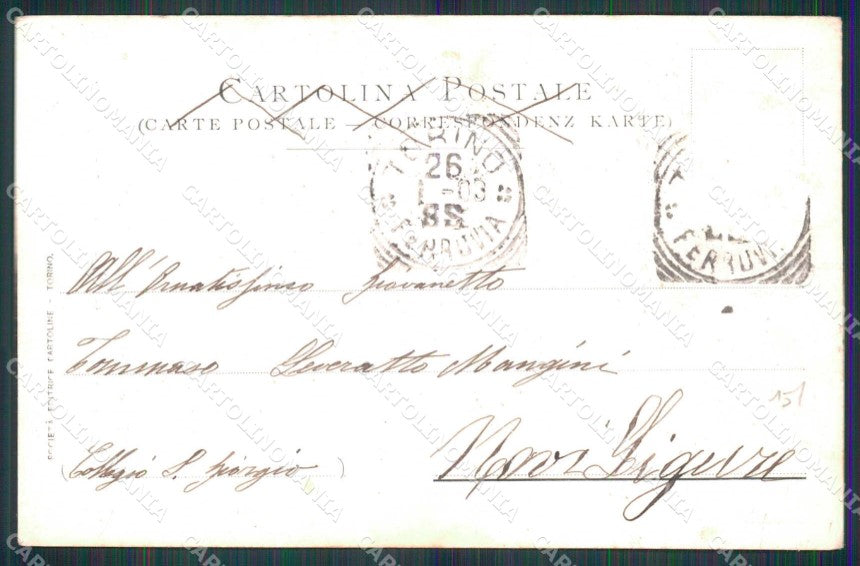 CARTOLINA POSTALE
(CARTE POSTALE — CORRESPONDENZ KARTE)
TORINO
26
1-03
8S
FERROVIA
FERROVI
All'Ornatissimo Giovanetto
Tommaso Leveratto Mangini
(Collegio S. Giorgio)
Novi Ligure
151
SOCIETÀ EDITRICE CARTOLINE - TORINO.
CARTOLINOMANIA